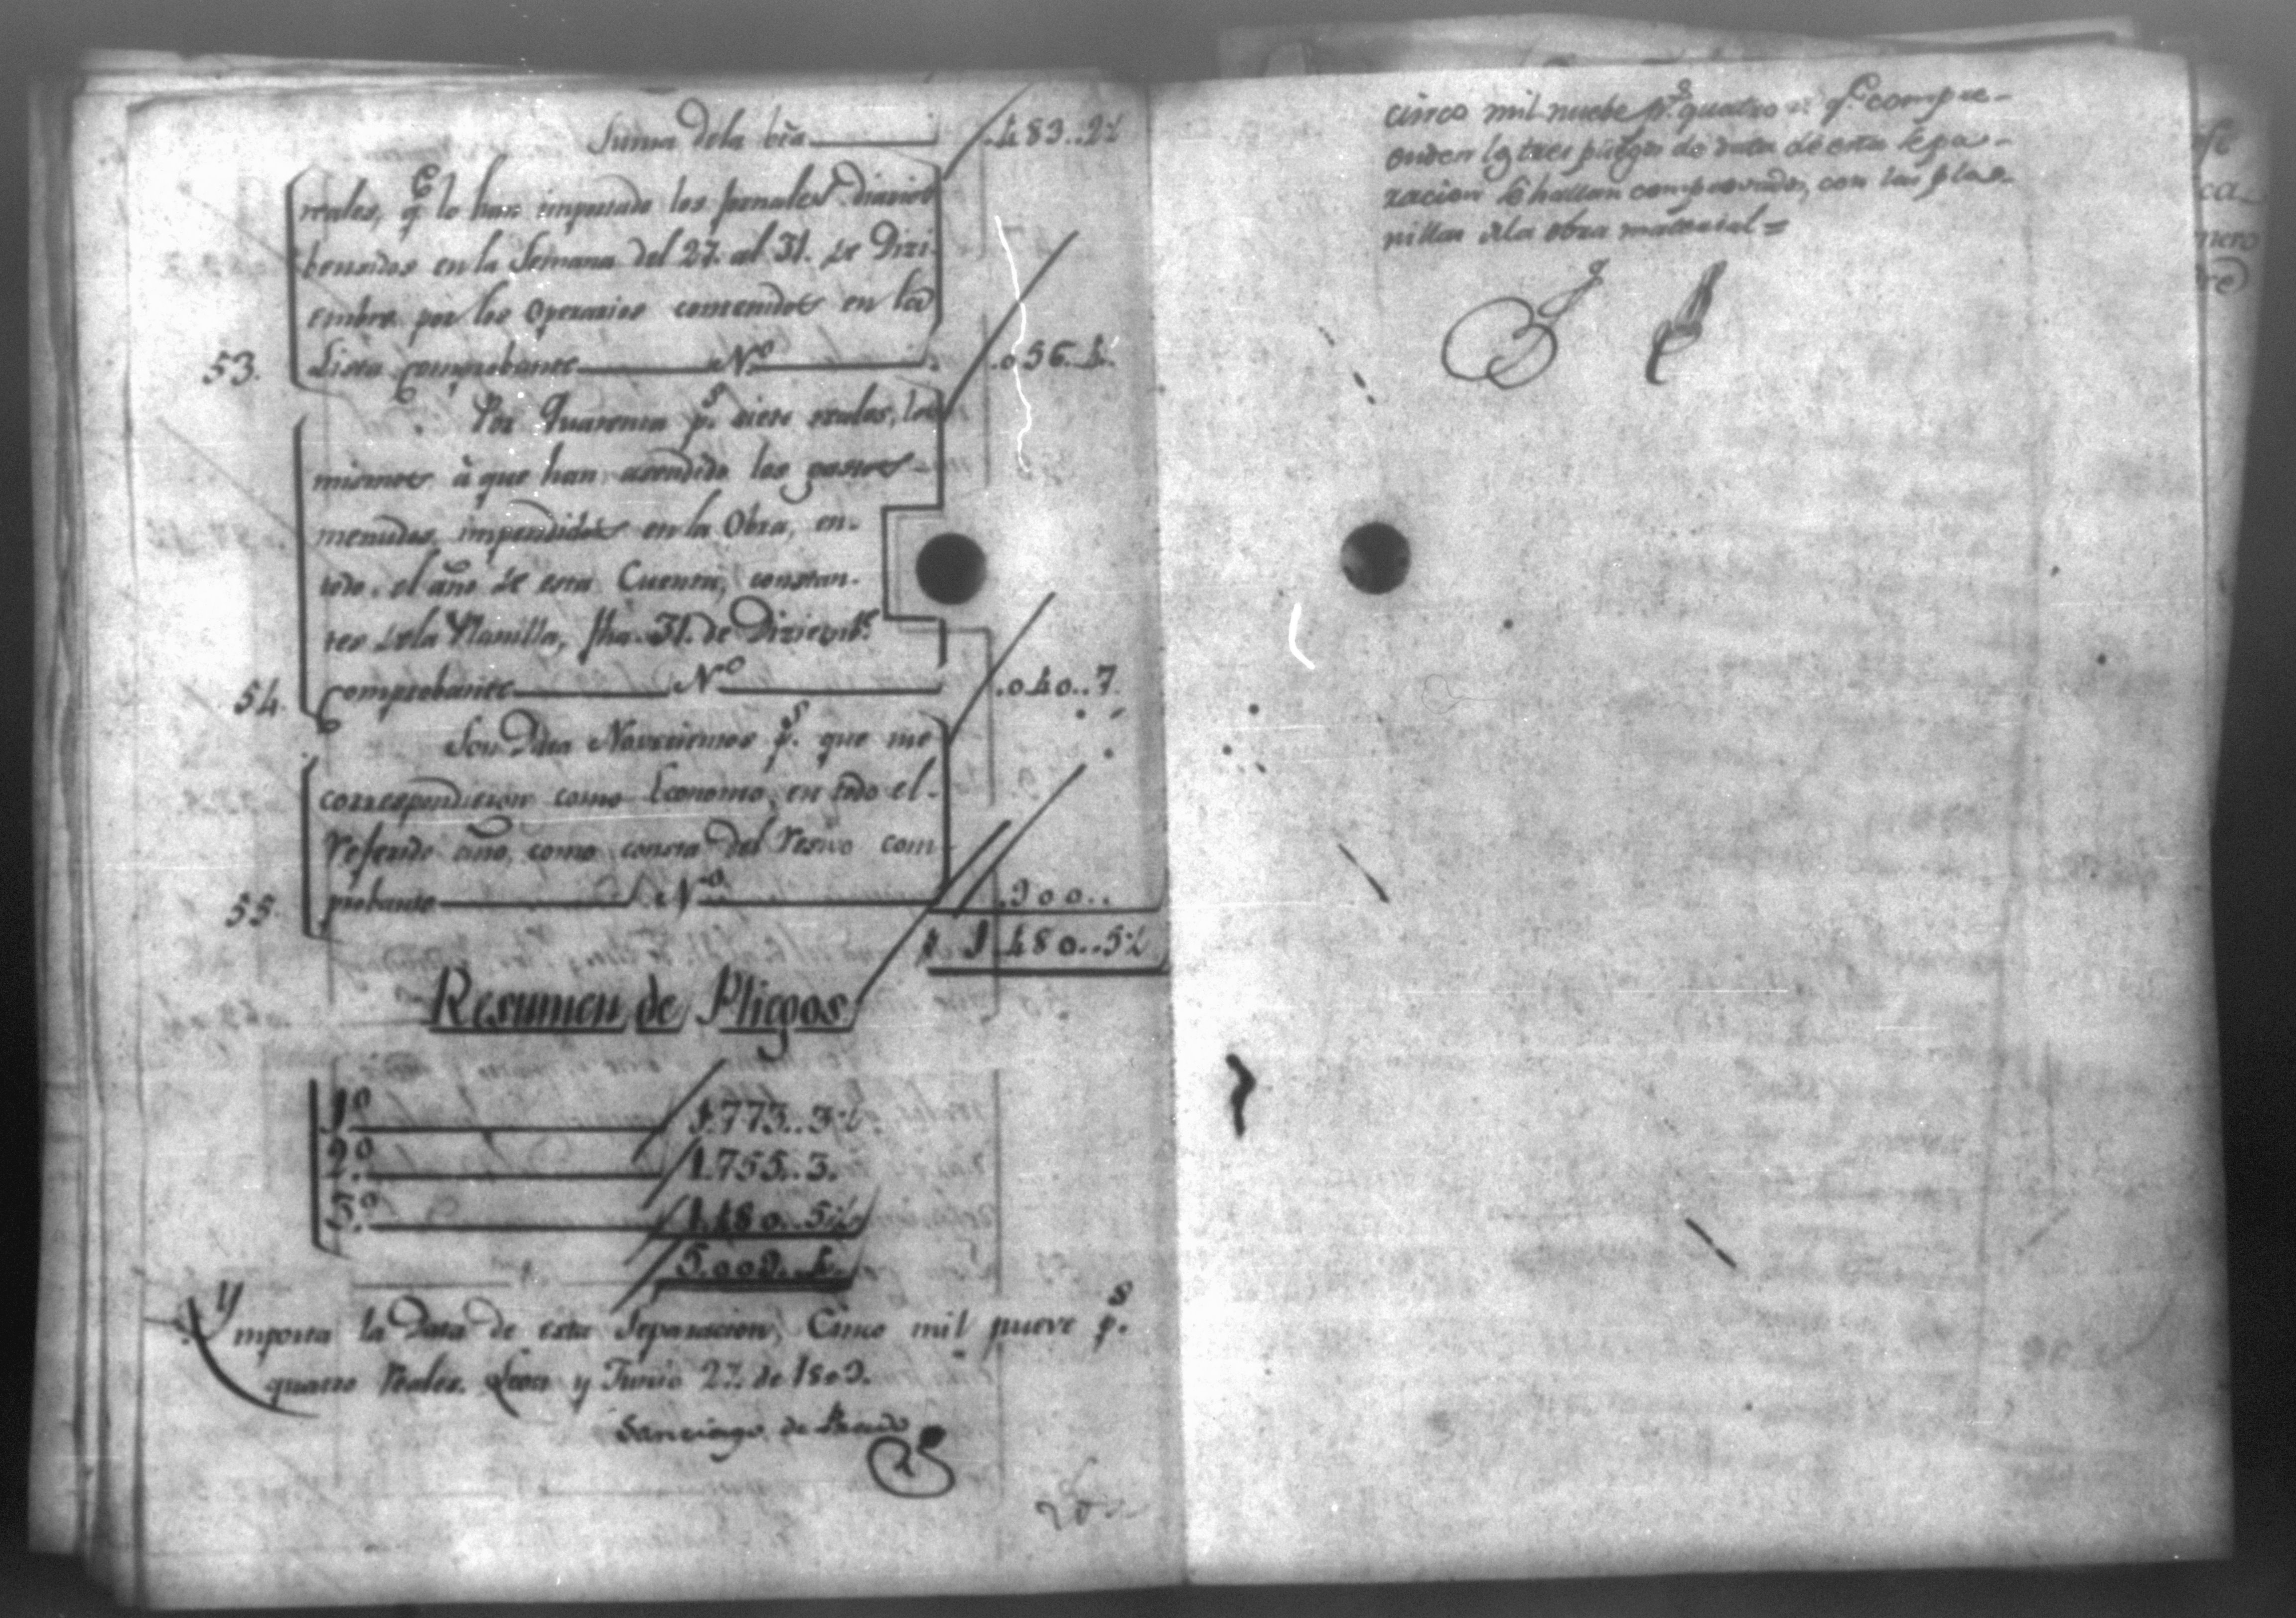 Suma dela bta 483..2½
reales, q.e lo han importado los jornales diarios
bensidos en la Semana del 27. al 31. de Dizi
embre por los Operarios contenidos en la
53. Lista comprobante Nº .056..4.
Por Quarenta p.s siete reales, los
mismos à que han asendido los gastos
menudos, impendidos en la Obra, en-
todo el año de esta Cuenta, constan-
tes dela Planilla, fha. 31. de Diziemb.e
54. Comprobante Nº .040..7.
Son Data Novecientos p.s que me
correspondieron como Economo, en todo el-
referido año, como consta del resivo com-
55. probante Nº .900..
1.480..5½
Resumen de Pliegos
1º 1.773..3½.
2º 1.755..3.
3º 1.480..5½
5.009..4.
Ymporta la Data de esta Separacion, Cinco mil nueve p.s
quatro reales. Leon y Junio 27. de 1809.
Santiago de
cinco mil nuebe p.s quatro r.s q.e compre-
enden los tres pliegos de data de esta Sepa-
racion se hallan comprovados, con las pla-
nillas dela obra material =